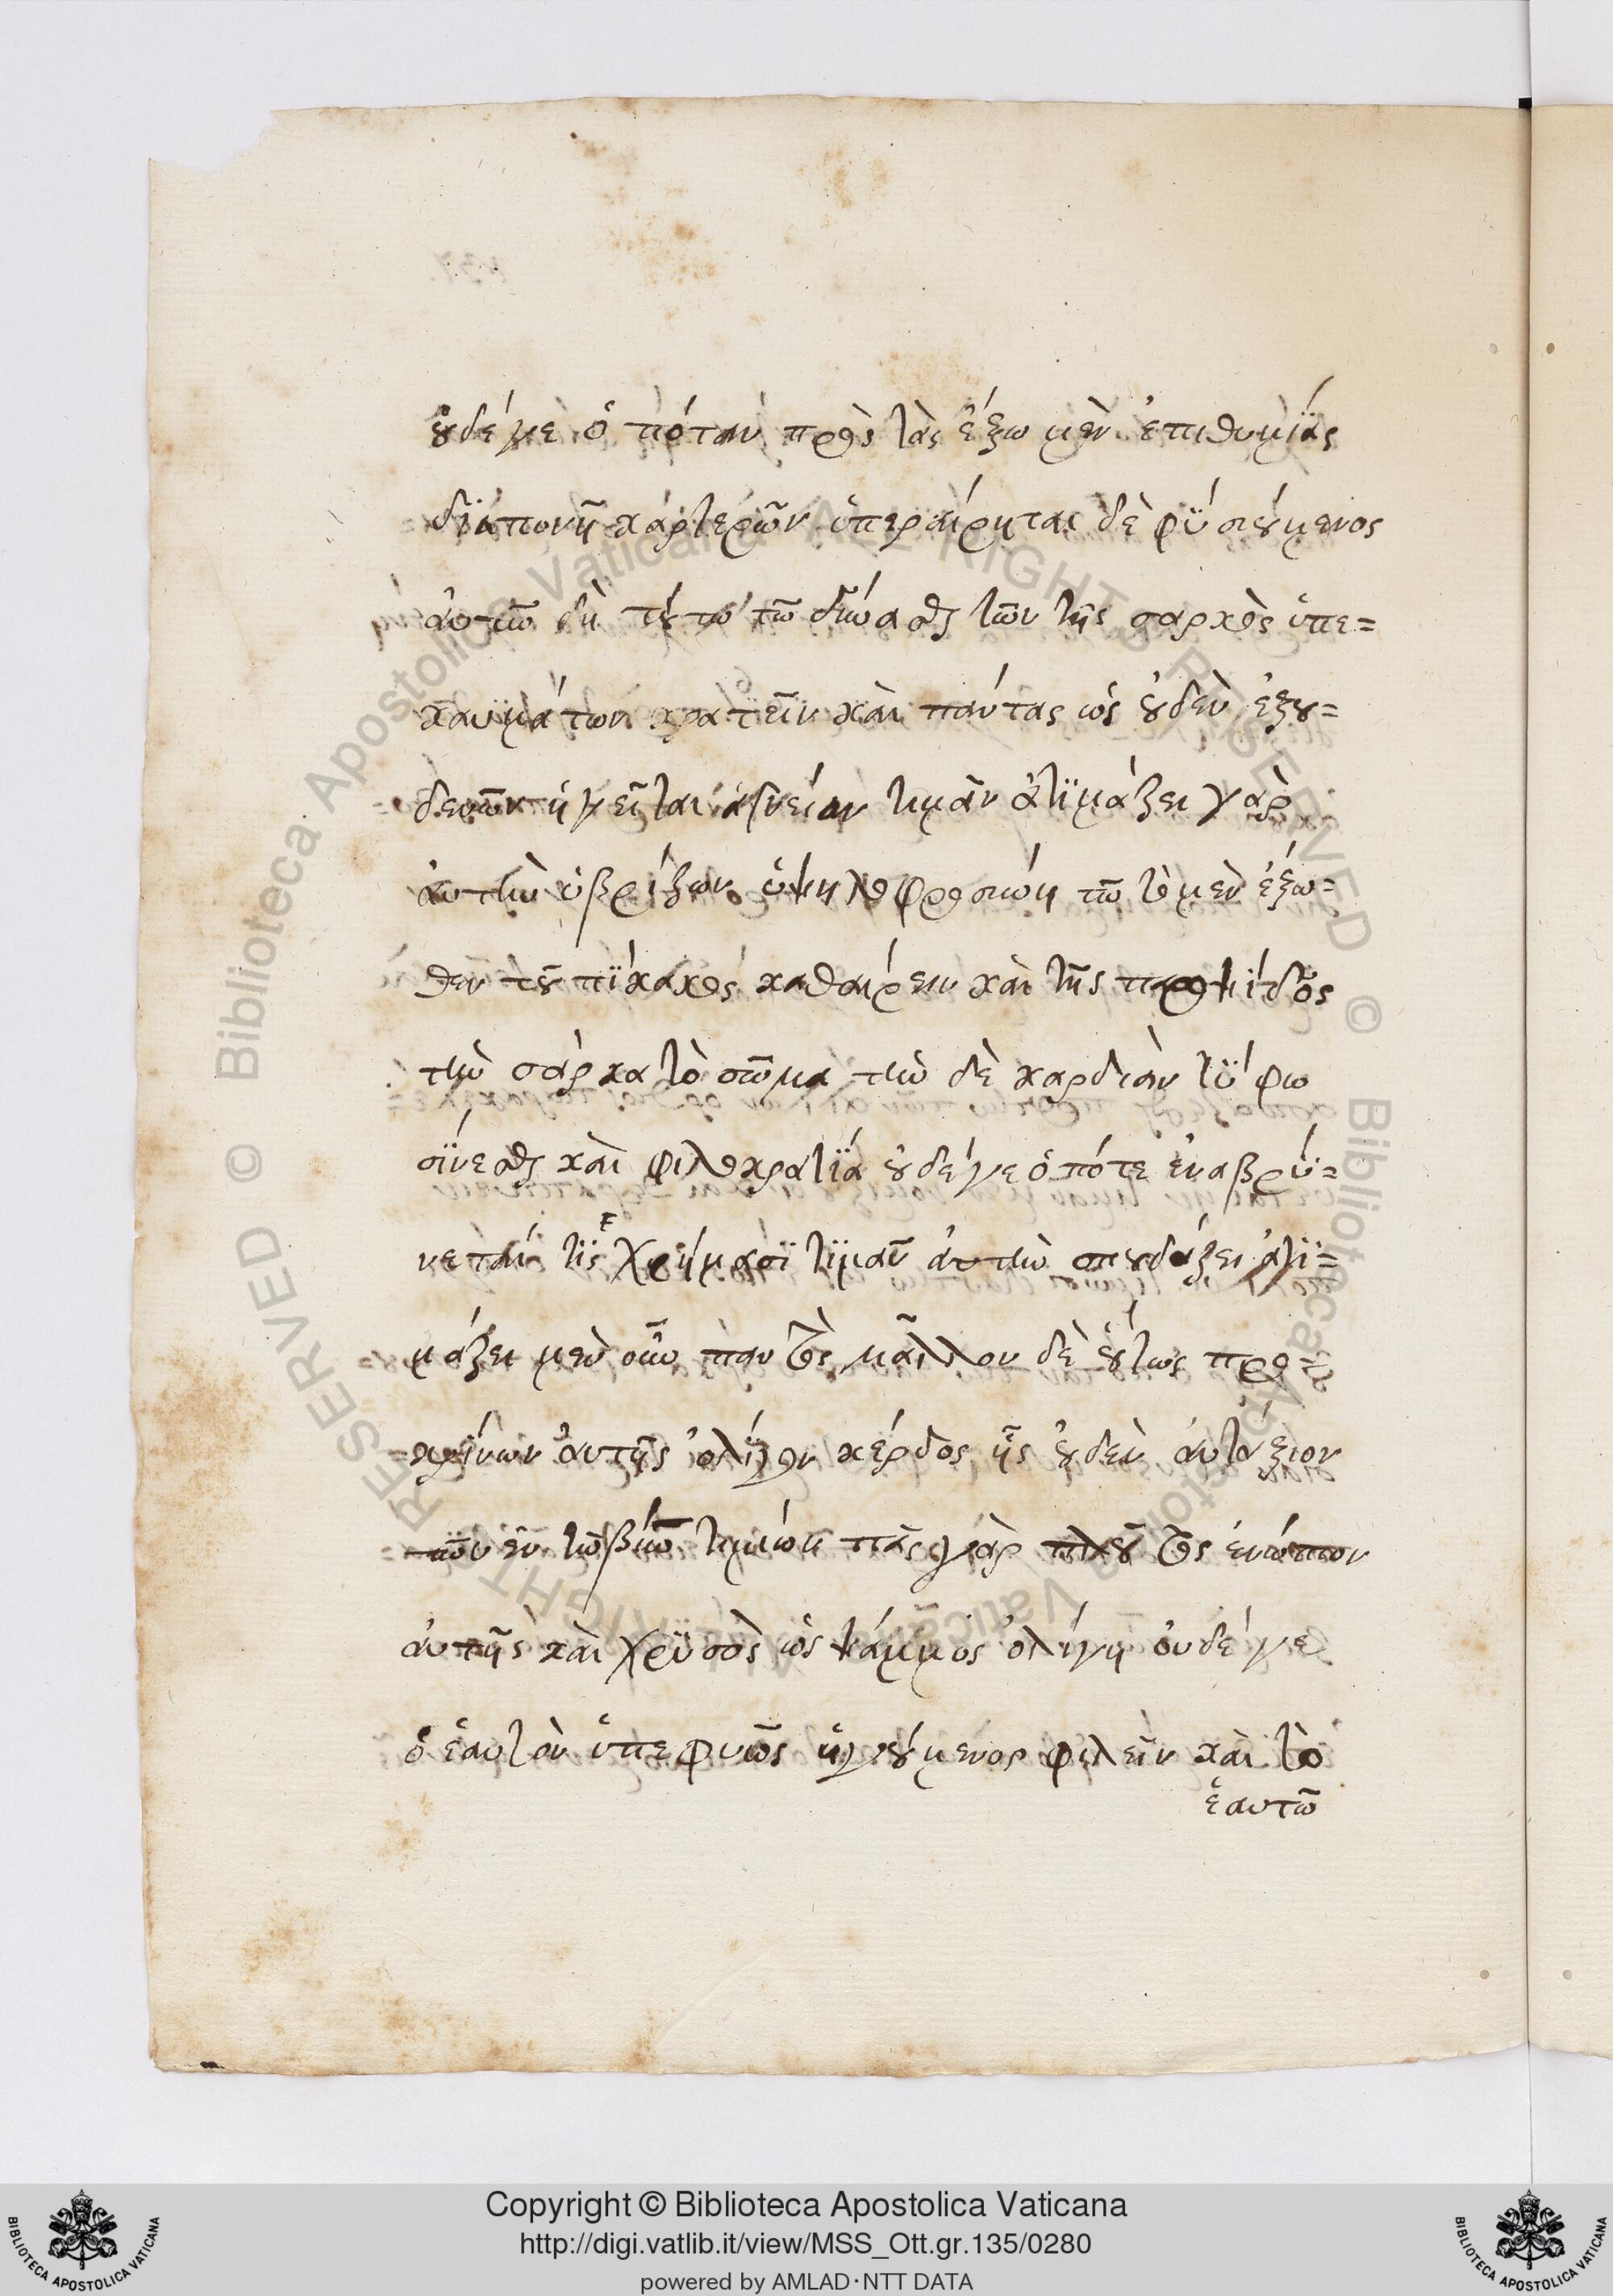 οὐδέ γε ὁπόταν πρὸς τὰς ἔξω μὲν ἐπιθυμίας
διαπονῇ καρτερῶν ὑπεραίρηται δὲ φϋσιούμενος
αὐτῶ δὴ τούτω τῶ δύνασθαι τῶν τῆς σαρκὸς ὑπε=
καυμάτων κρατεῖν καὶ πάντας ὡς οὐδὲν ἐξου=
δενῶν ἡγεῖται ἁγνείαν τιμᾶν ἀτϊμάζει γὰρ
αὐτὴν ὑβρίζων ὑψηλοφροσύνη τῶ τὸ μὲν ἔξω=
θεν τοῦ πίνακος καθαίρειν καὶ τῆς παροψίδος
τὴν σάρκα τὸ σῶμα τὴν δὲ καρδίαν τύφω
σίνεσθαι καὶ φιλοκρατϊα οὐδέ γε ὁπότε ἐναβρύ=
νεταί τϊς χρήμασϊ τϊμᾶν αὐτὴν σπουδάζει ἀτϊ=
μάζει μὲν οὖν παντὸς μᾶλλον δὲ οὕτως προ=
κρίνων αὐτῆς ὀλίγον κέρδος ἧς οὐδὲν ἀντάξιον
τῶν ἐν τῶ βίω τιμίων πᾶς γὰρ πλοῦτος ἐνώπιον
αὐτῆς καὶ χρϋσὸς ὡς ψάμμος ὀλίγη οὐδέ γε
ὁ ἑαυτὸν ὑπερφυῶς ἡγούμενος φιλεῖν καὶ τὸ
ἑαυτῶ
Copyright © Biblioteca Apostolica Vaticana
http://digi.vatlib.it/view/MSS_Ott.gr.135/0280
powered by AMLAD·NTT DATA
BIBLIOTECA APOSTOLICA VATICANA
BIBLIOTECA APOSTOLICA VATICANA
© Biblioteca Apostolica Vaticana ALL RIGHTS RESERVED
© Biblioteca Apostolica Vaticana ALL RIGHTS RESERVED